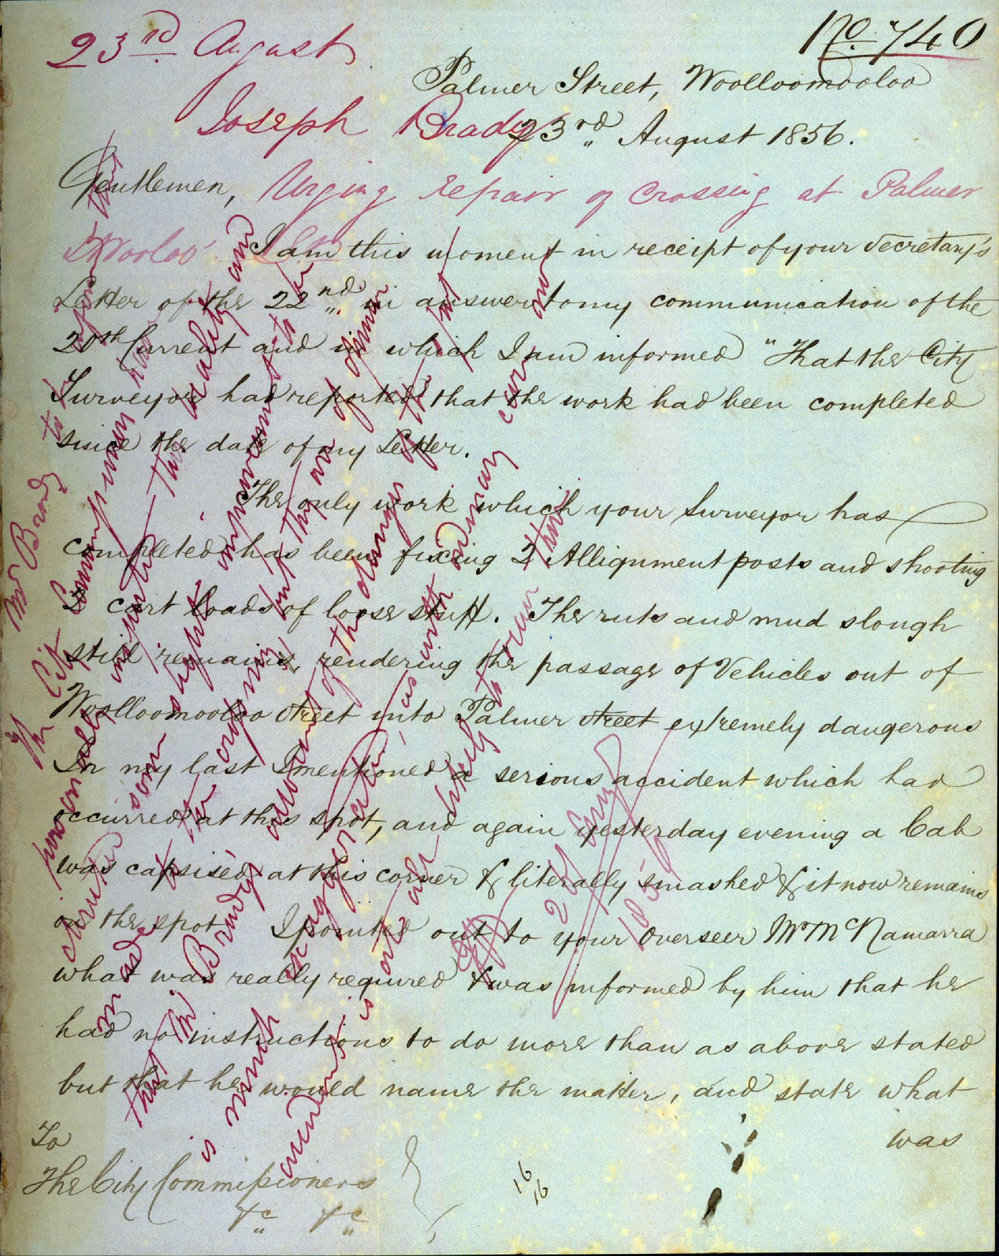 23rd August
No. 740
Palmer Street, Woolloomooloo
Joseph Brady
23rd August 1856.
Gentlemen,
Urging repair of crossing at Palmer
St Wooloo
I am this moment in receipt of your Secretary's
Letter of the 22nd in answer to my communication of the
20th Current and in which I am informed "That the City
Surveyor had reported that the work had been completed
since the date of my Letter.
The only work which your Surveyor has
completed has been fixing 2 Allignment posts and shooting
2 cart loads of loose stuff. The ruts and mud slough
still remains, rendering the passage of Vehicles out of
Woolloomooloo street into Palmer street extremely dangerous
In my last I mentioned a serious accident which had
occurred at this spot, and again yesterday evening a Cab
was capsised at this corner & literally smashed & it now remains
on the spot. I pointed out to your Overseer Mr McNamarra
what was really required & was informed by him that he
had no instructions to do more than as above stated
but that he would name the matter, and state what
was
To
The City Commissioners
&c &c
16
16
Mr Brady
The City Commissioners
personally inspected the locality and
some slight improvement to be
made at the crossing but they are of opinion
that Mr Brady's account of the danger of the spot
is much exaggerated as with ordinary care no
accident is at all likely to occur there
25 Aug
1856